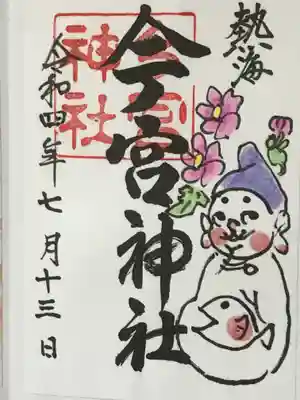 熱海
今宮神社
今宮
神社
令和四年七月十三日